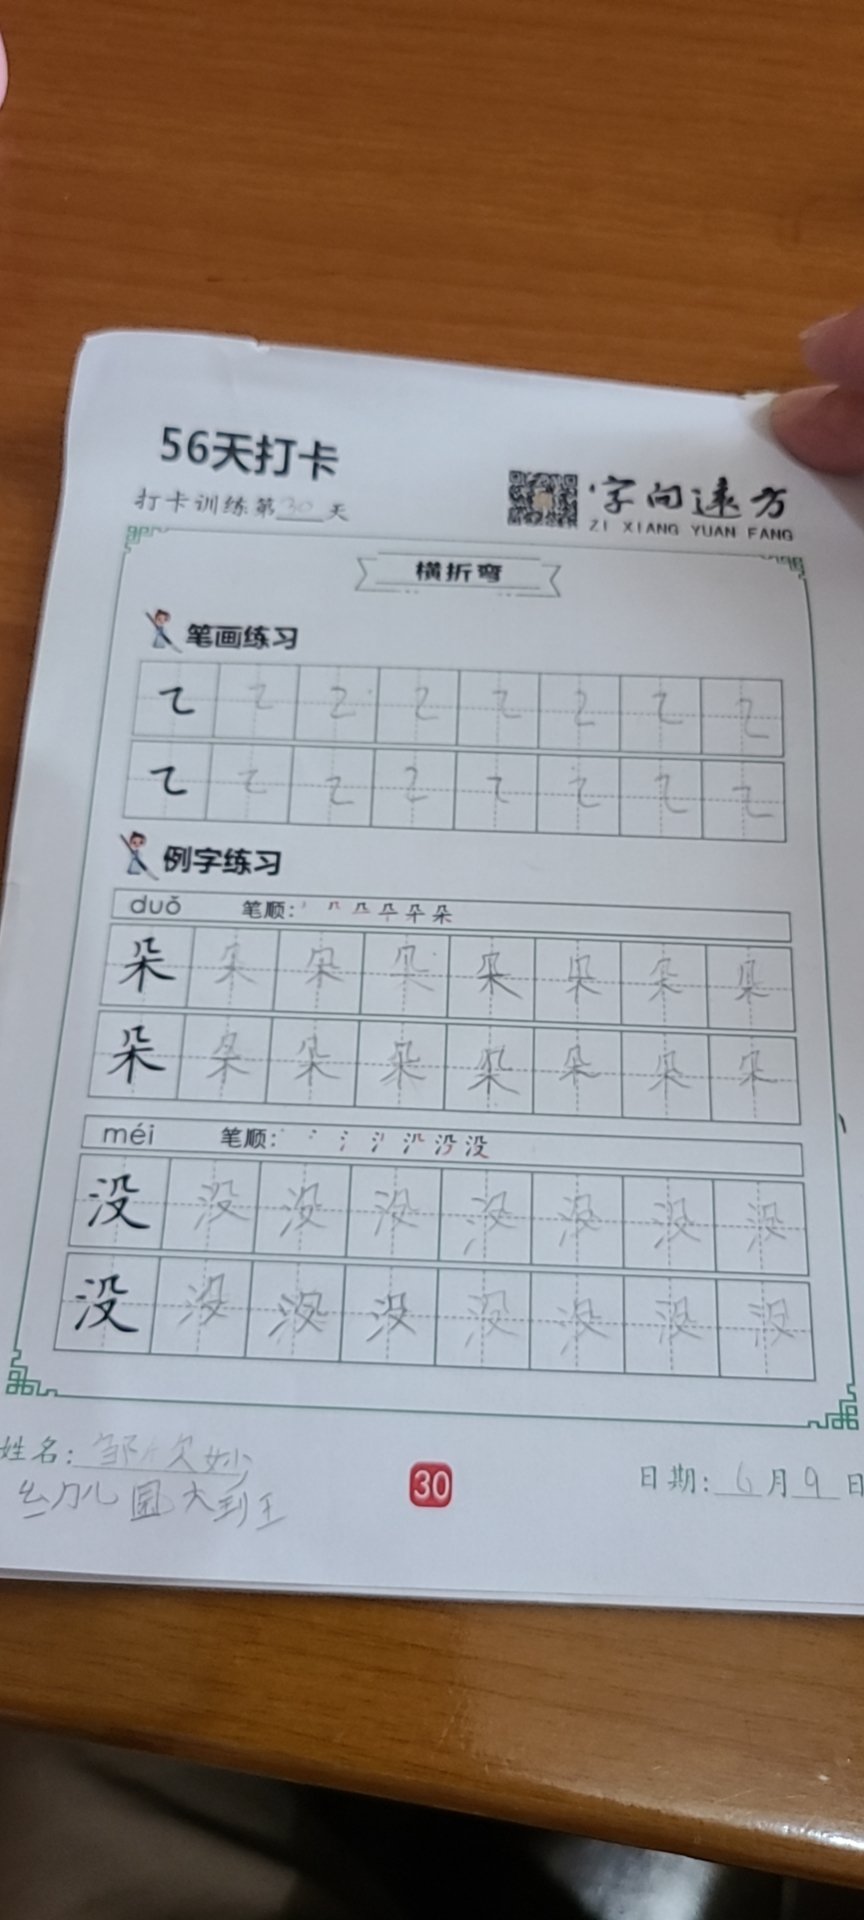 56天打卡
打卡训练第30天
字向远方
ZI XIANG YUAN FANG
横折弯
笔画练习
例字练习
duǒ 笔顺:
朵 朵 朵 朵 朵 朵 朵 朵
朵 朵 朵 朵 朵 朵 朵 朵
méi 笔顺:
没 没 没 没 没 没 没 没
没 没 没 没 没 没 没 没
姓名: 邹 妙
幼儿园大
30
日期: 6月9日